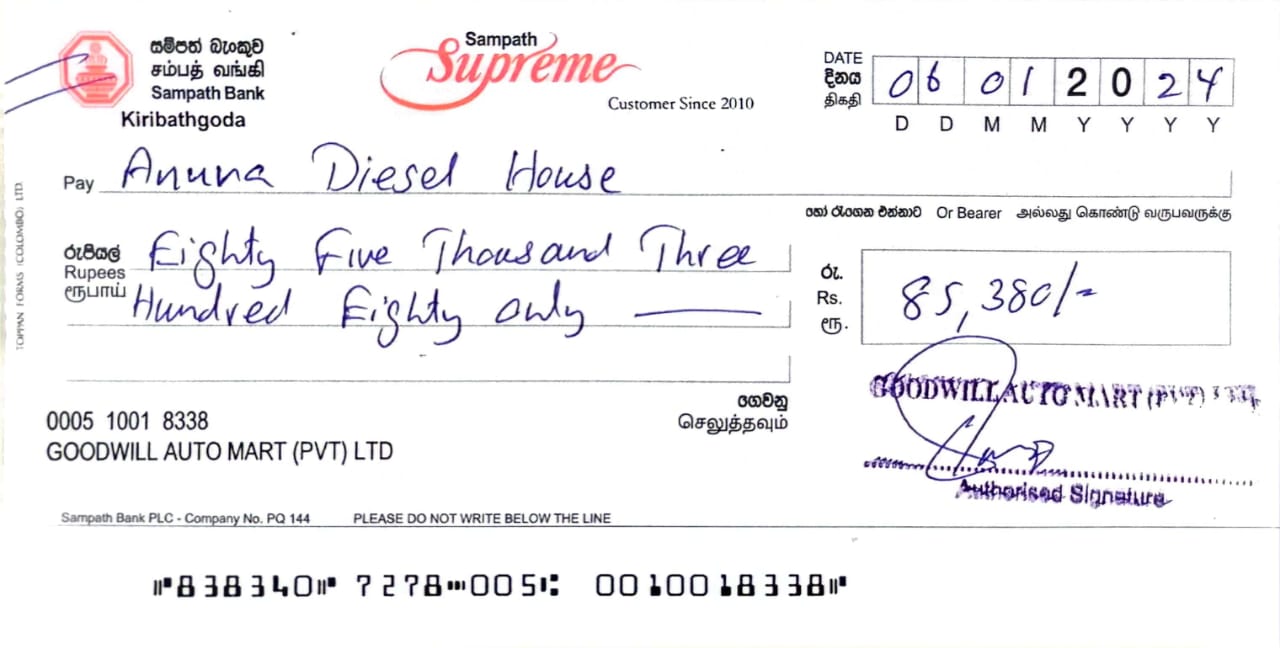 සම්පත් බැංකුව
சம்பத் வங்கி
Sampath Bank
Kiribathgoda
Sampath
Supreme
Customer Since 2010
DATE
දිනය
திகதி
06 01 2024
D D M M Y Y Y Y
Pay Anuna Diesel House
හෝ රැගෙන එන්නාට Or Bearer அல்லது கொண்டு வருபவருக்கு
රුපියල්
Rupees
ரூபாய்
Eighty Five Thousand Three
Hundred Eighty only
රු.
Rs.
ரூ.
85,380/-
TOPPAN FORMS (COLOMBO) LTD.
ගෙවනු
செலுத்தவும்
0005 1001 8338
GOODWILL AUTO MART (PVT) LTD
GOODWILL AUTO MART (PVT) LTD.
Authorised Signature
Sampath Bank PLC - Company No. PQ 144 PLEASE DO NOT WRITE BELOW THE LINE
⑈838340⑈ 7278⑉005⑆ 0010018338⑈